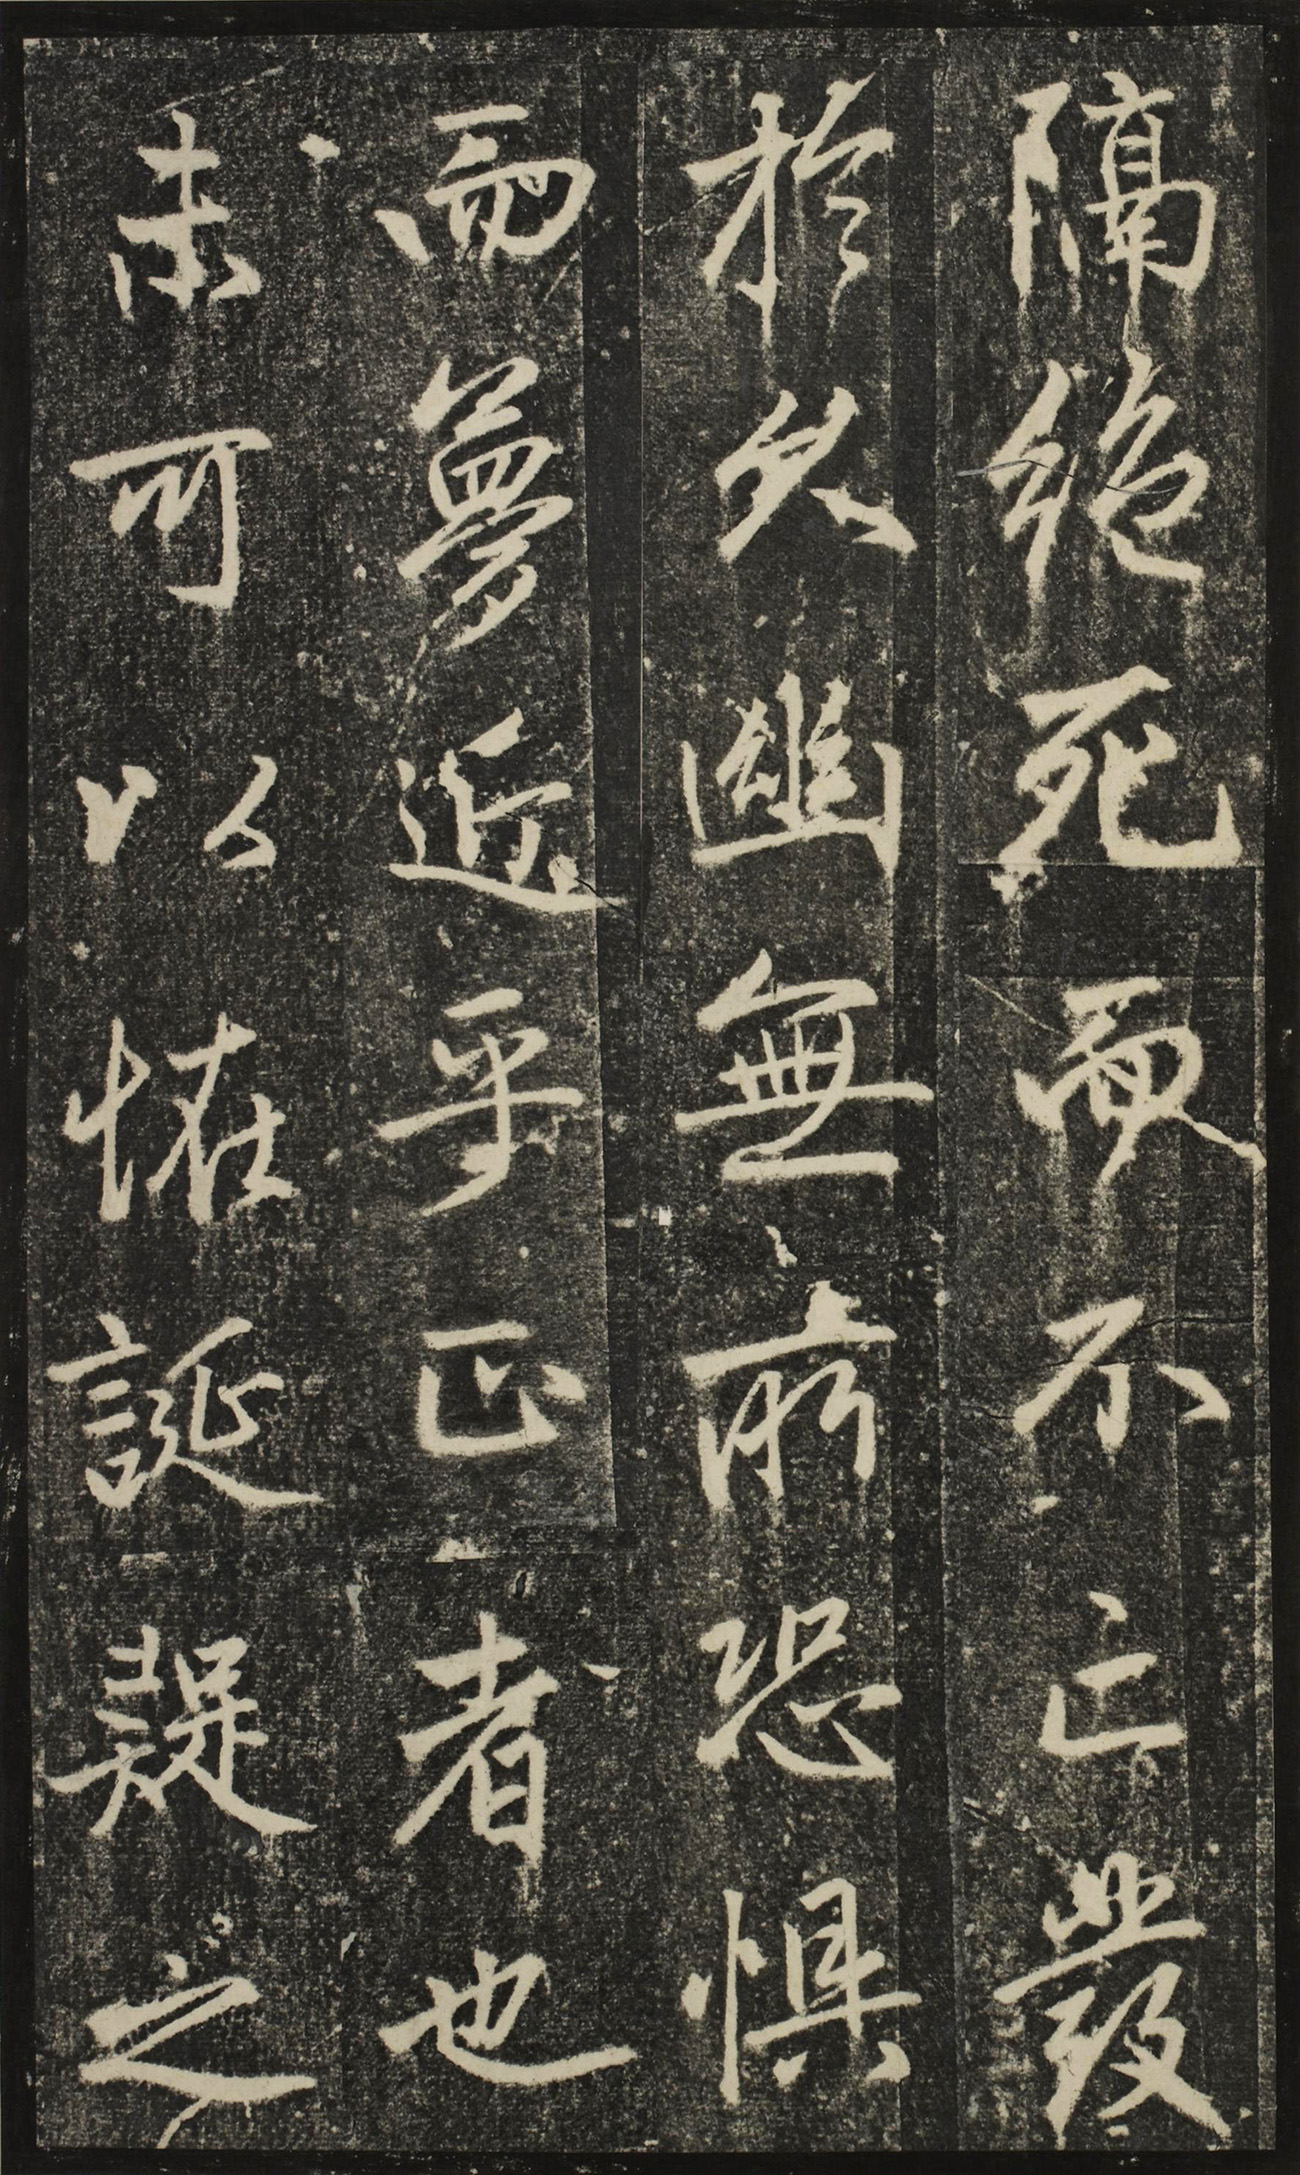 隔絶死而不亡發
於久幽無所恐懼
而夢近乎正者也
未可以恠誕疑之